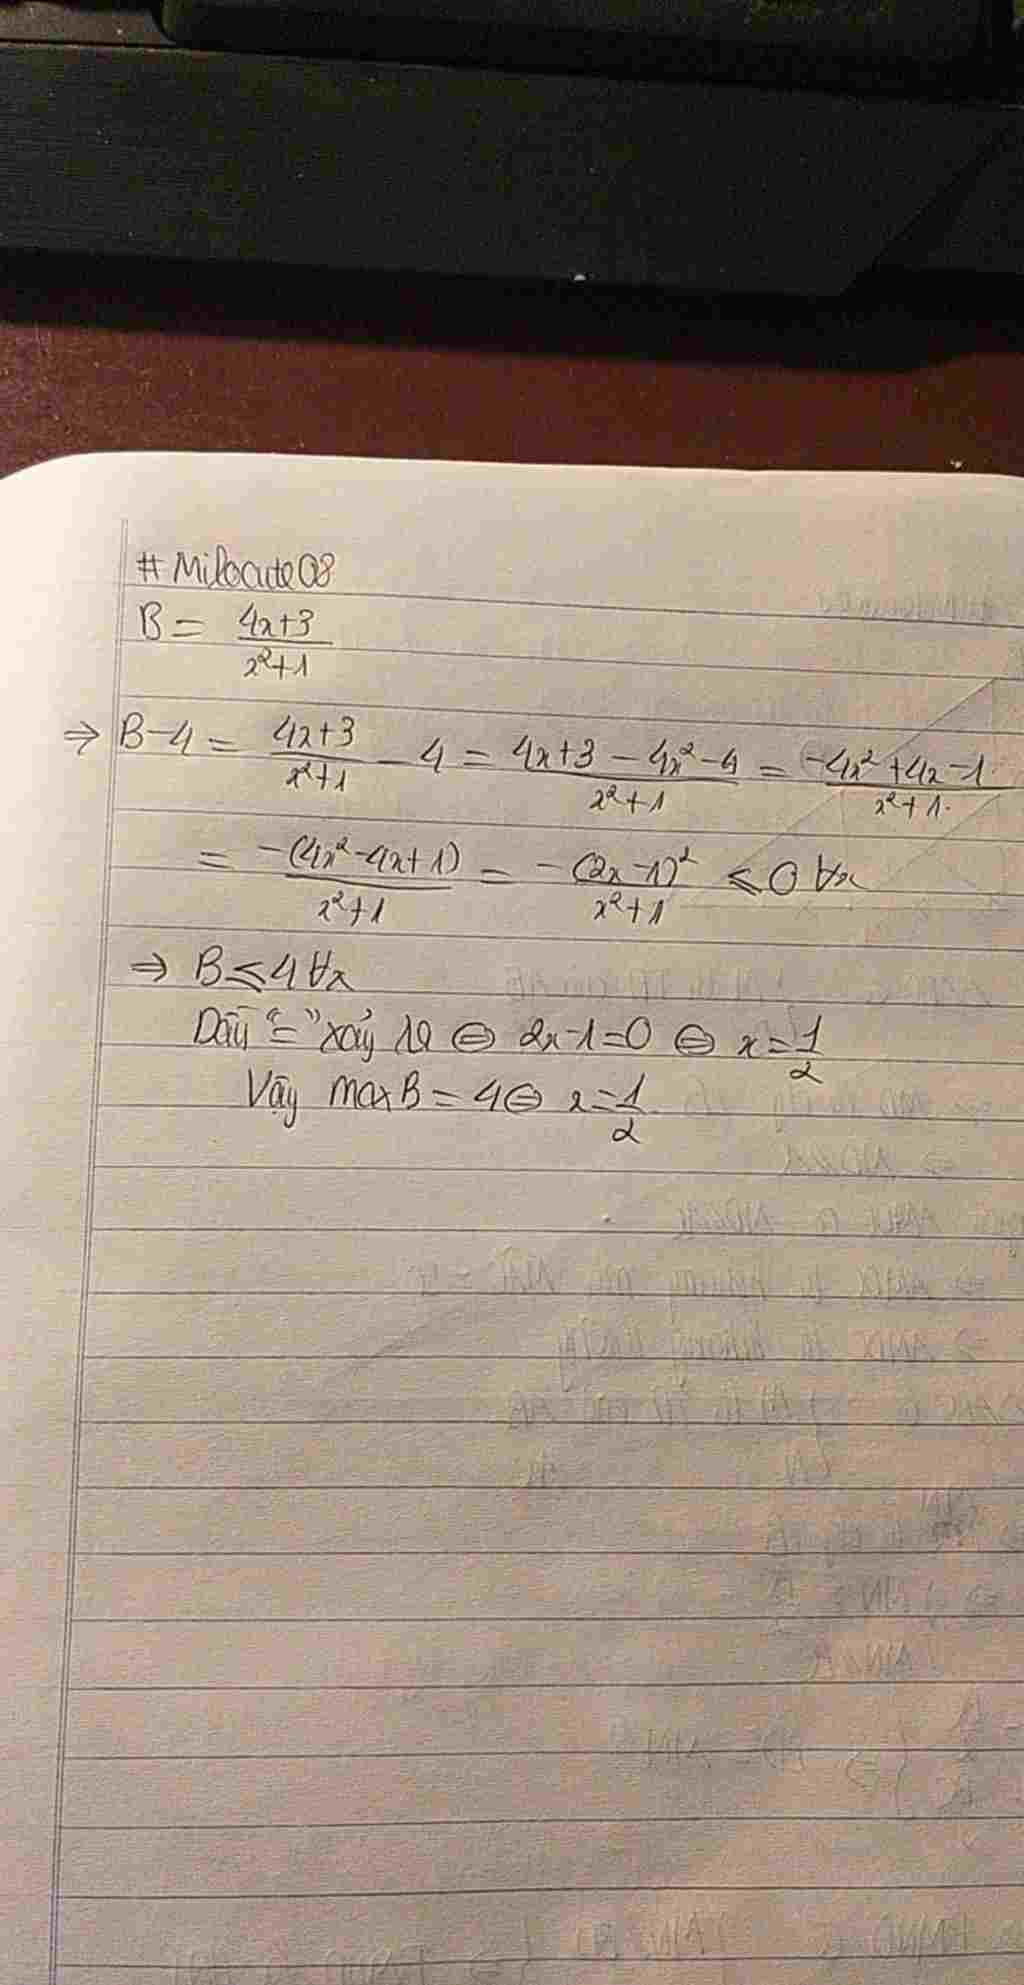 #Milocute08
B = \frac{4x+3}{x²+1}
⇒ B-4 = \frac{4x+3}{x²+1} - 4 = \frac{4x+3-4x²-4}{x²+1} = \frac{-4x²+4x-1}{x²+1}
= \frac{-(4x²-4x+1)}{x²+1} = \frac{-(2x-1)²}{x²+1} ⩽ 0 ∀x
⇒ B ⩽ 4 ∀x
Dấu "=" xảy ra ⇔ 2x-1=0 ⇔ x = \frac{1}{2}
Vậy maxB = 4 ⇔ x = \frac{1}{2}